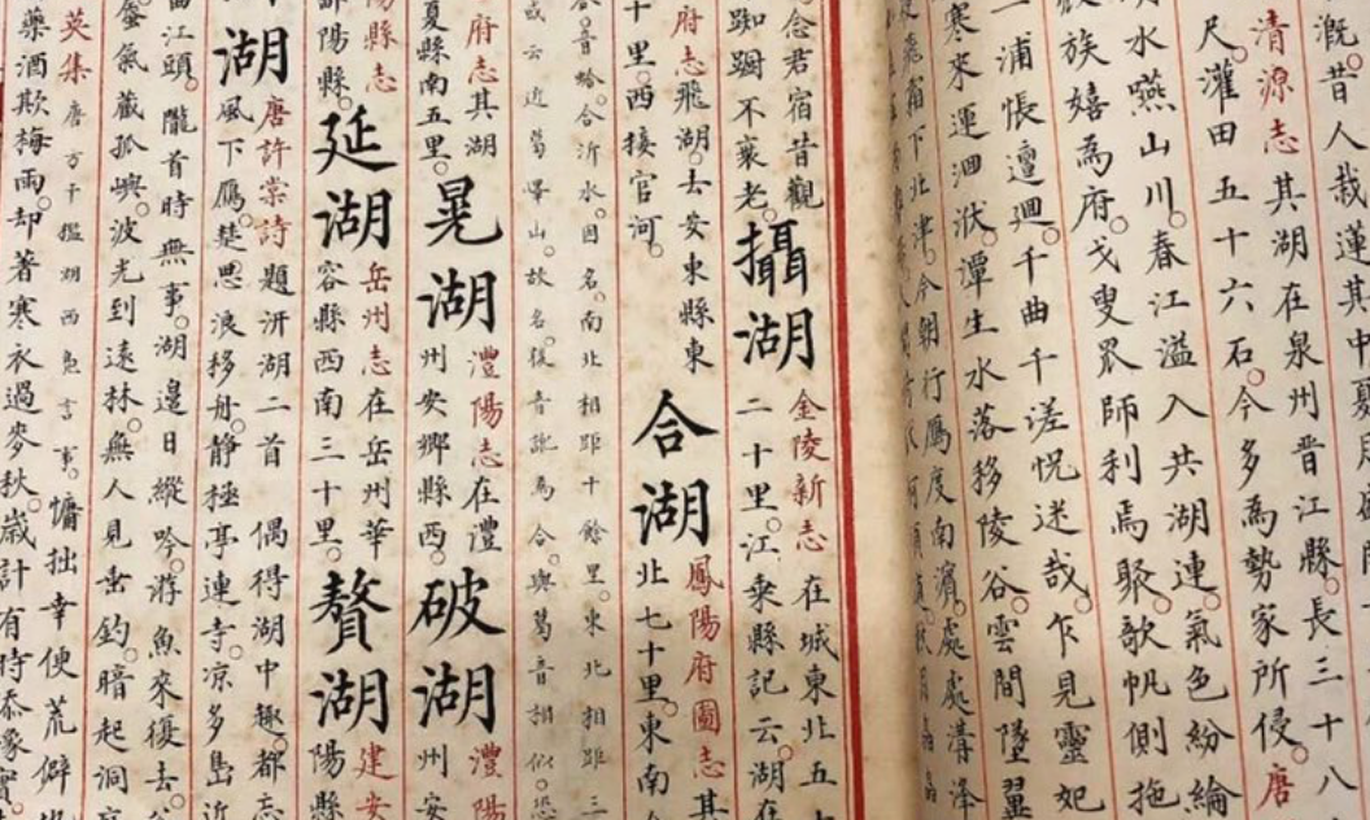 溉。昔人栽蓮其中夏
清源志其湖在泉州晋江縣。長三十八
尺。灌田五十六石。今多為勢家所侵。唐
水燕山川。春江溢入共湖連。氣色紛綸
族嬉為府。戈叟罛師利焉聚。歌帆側拖
一浦悵邅迴。千曲千溠怳迷哉。乍見靈妃
寒來運洄洑。潭生水落移陵谷。雲間墜翼
飛霜下北津。今朝行鴈度南濱。處處溝澤
念君宿昔觀
踟蹰不衰老。
攝湖
金陵新志在城東北五
二十里。江乘縣記云。湖在
府志飛湖。去安東縣東
十里。西接官河。
合湖
鳳陽府圖志其
北七十里。東南
音蛤。合沂水。因名。南北相距十餘里。東北相距三
或云近葛嶧山。故名。後音訛為合。與葛音相似。恐
府志其湖
夏縣南五里。
晃湖
澧陽志在澧
州安鄉縣西。
破湖
澧陽
州安
陽縣志
鄱陽縣。
延湖
岳州志在岳州華
容縣西南三十里。
贅湖
建安
陽縣
湖
唐許棠詩題汧湖二首 偶得湖中趣。都忘
風下鴈。楚思浪移舟。静極亭連寺。凉多島近
江頭。隴首時無事。湖邊日縱吟。游魚來復去。
蜃氣藏孤嶼。波光到遠林。無人見垂釣。暗起洞
英集唐方干鑑湖西島言事。慵拙幸便荒僻
藥酒欺梅雨。却著寒衣過麥秋。歲計有時添橡實。